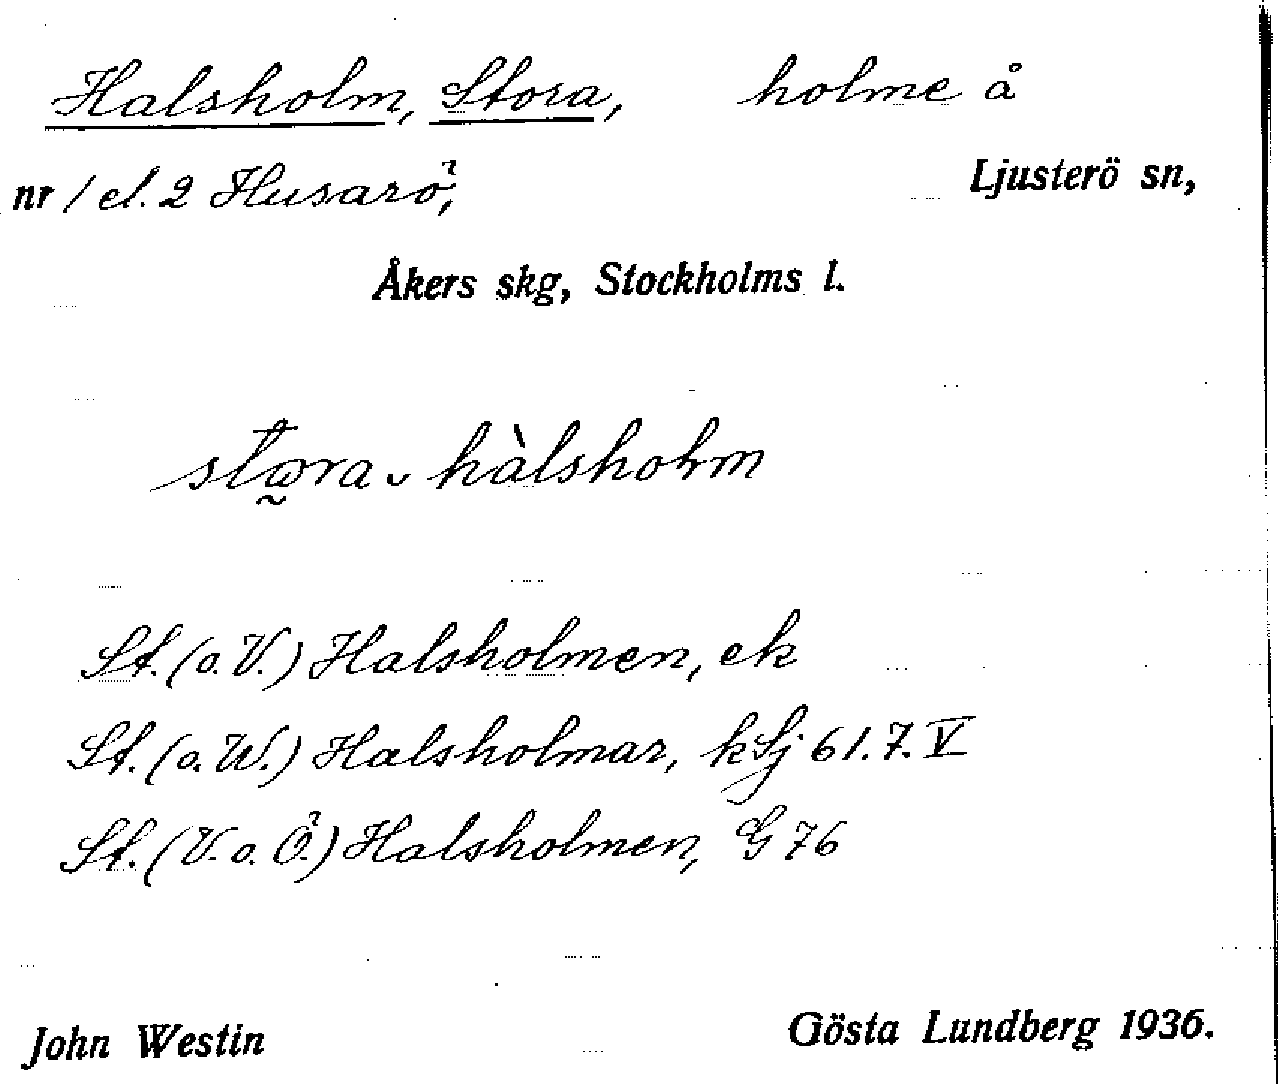 Halsholm, Stora, holme å
nr 1 el. 2 Husarö, Ljusterö sn,
Åkers skg, Stockholms l.
stɷra ᴗ hàlsholm
St. (o. V.) Halsholmen, ek
St. (o. W.) Halsholmar, kSj 61.7.V
St. (V. o. Ö.) Halsholmen, G 76
John Westin Gösta Lundberg 1936.